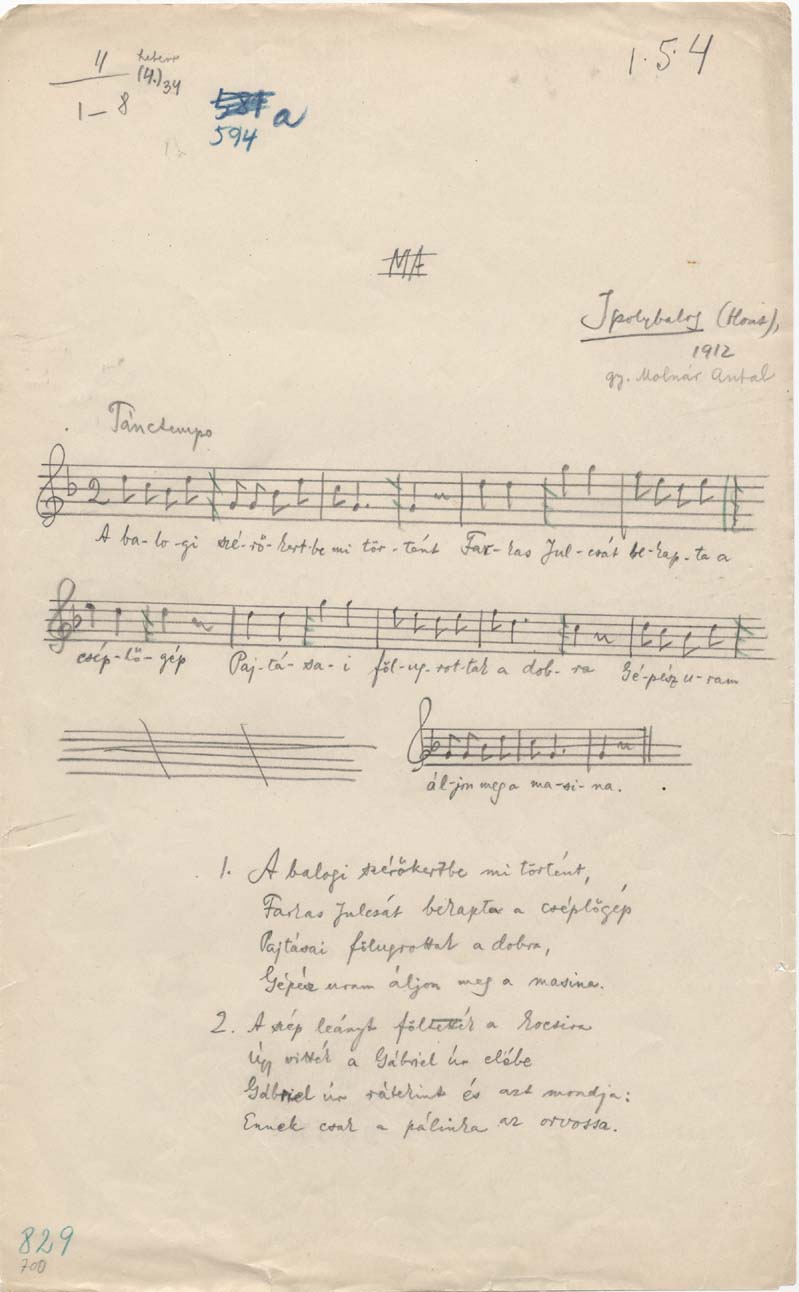 11 heteros 1. 5. 4
(4.) 34
1 – 8
587 a
594
MF
Ipolybalog (Hont),
1912
gy. Molnár Antal
Tánctempo
2
A ba-lo-gi szé-rő-kert-be mi tör-tént Far-kas Jul-csát be-kap-ta a
csép-lő-gép Paj-tá-sa-i föl-ug-rot-tak a dob-ra Gé-pész u-ram
ál-jon meg a ma-si-na.
1. A balogi szérőkertbe mi történt,
Farkas Julcsát bekapta a cséplőgép
Pajtásai fölugrottak a dobra,
Gépész uram áljon meg a masina.
2. A szép leányt föltették a kocsira
Úgy vitték a Gábriel úr elébe
Gábriel úr rátekint és azt mondja:
Ennek csak a pálinka az orvossa.
829
700